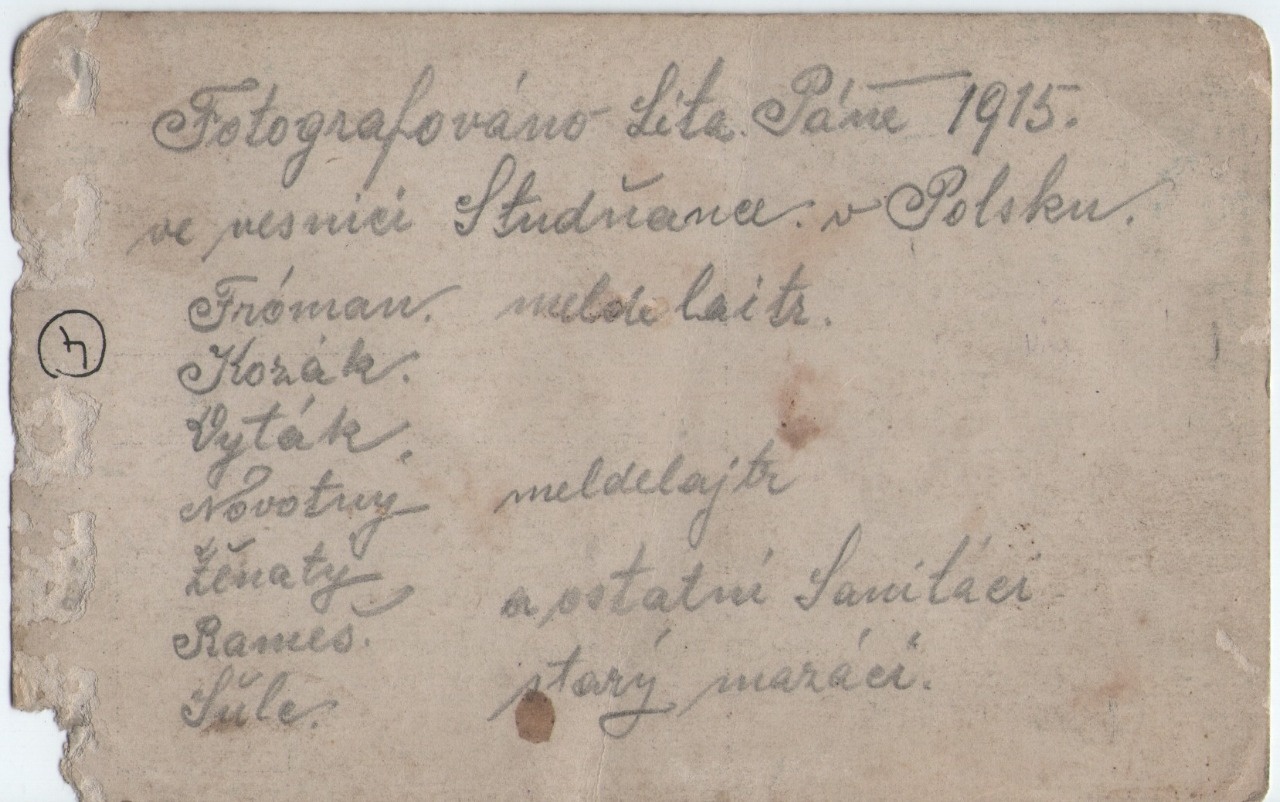 Fotografováno Léta Páně 1915.
ve vesnici Studňance v Polsku.
Fróman. meldelaitr.
Kozák.
Vyták.
4
Novotný meldelajtr
Žěnatý
a ostatní Sanitáci
Rameš.
Šůle. starý mazáci.